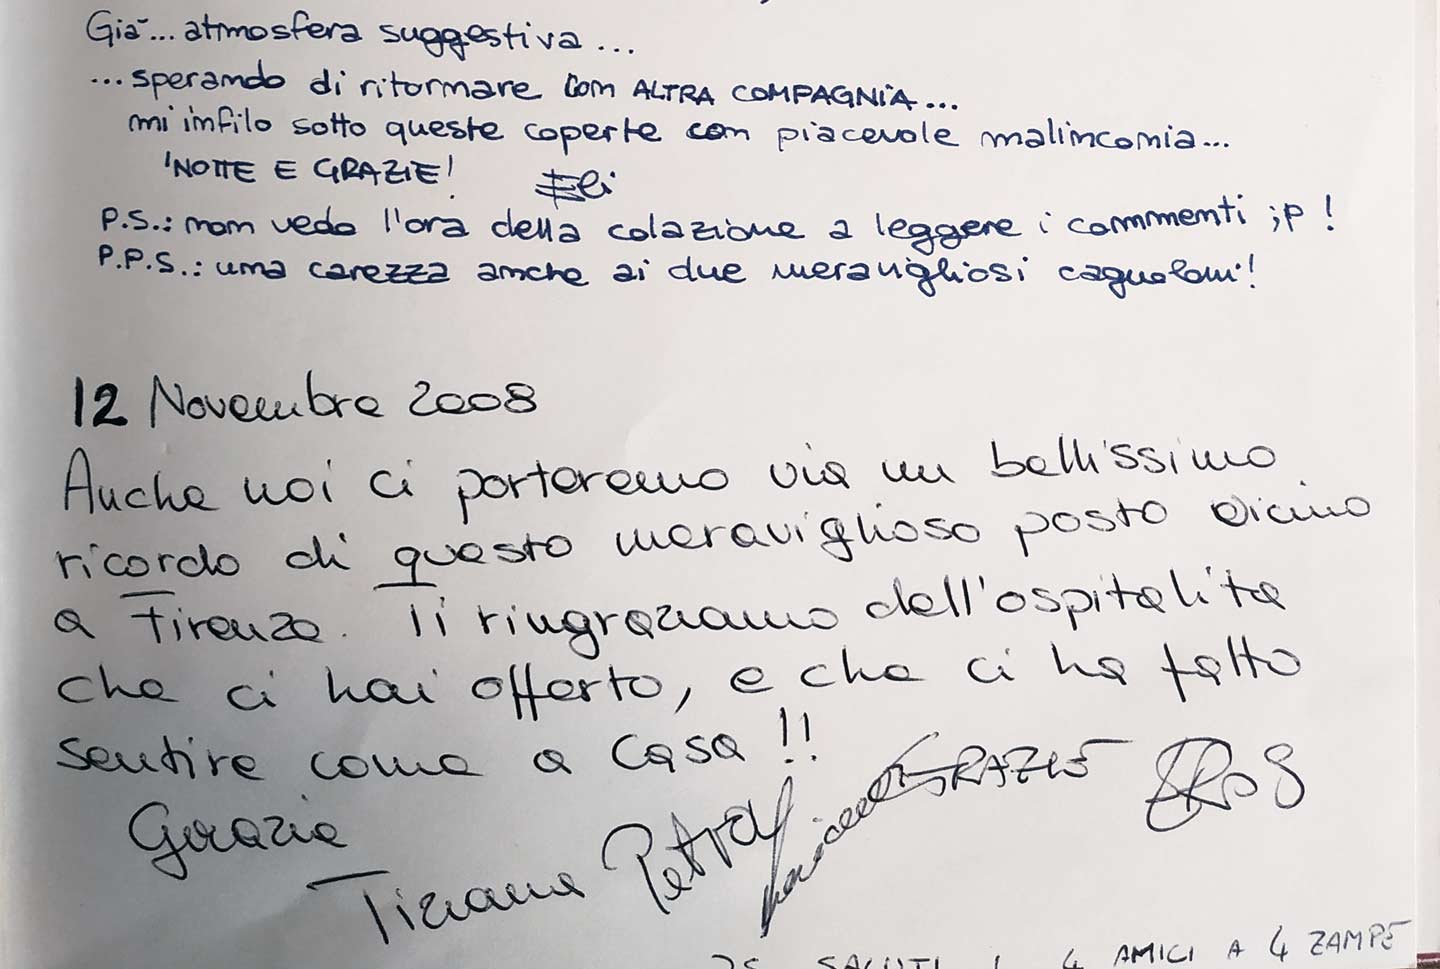 Già... atmosfera suggestiva...
...sperando di ritornare con ALTRA COMPAGNIA...
mi infilo sotto queste coperte con piacevole malinconia...
'NOTTE E GRAZIE! Eli
P.S.: non vedo l'ora della colazione a leggere i commmenti ;p !
P.P.S.: una carezza anche ai due meravigliosi cagnoloni!
12 Novembre 2008
Anche noi ci porteremo via un bellissimo
ricordo di questo meraviglioso posto vicino
a Firenze. Ti ringraziamo dell'ospitalita
che ci hai offerto, e che ci ha fatto
sentire come a casa!!
Grazie
Tiziana Petra GRAZIE
PS SALUTI I 4 AMICI A 4 ZAMPE